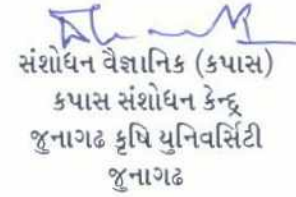 સંશોધન વૈજ્ઞાનિક (કપાસ)
કપાસ સંશોધન કેન્દ્ર
જુનાગઢ કૃષિ યુનિવર્સિટી
જુનાગઢ